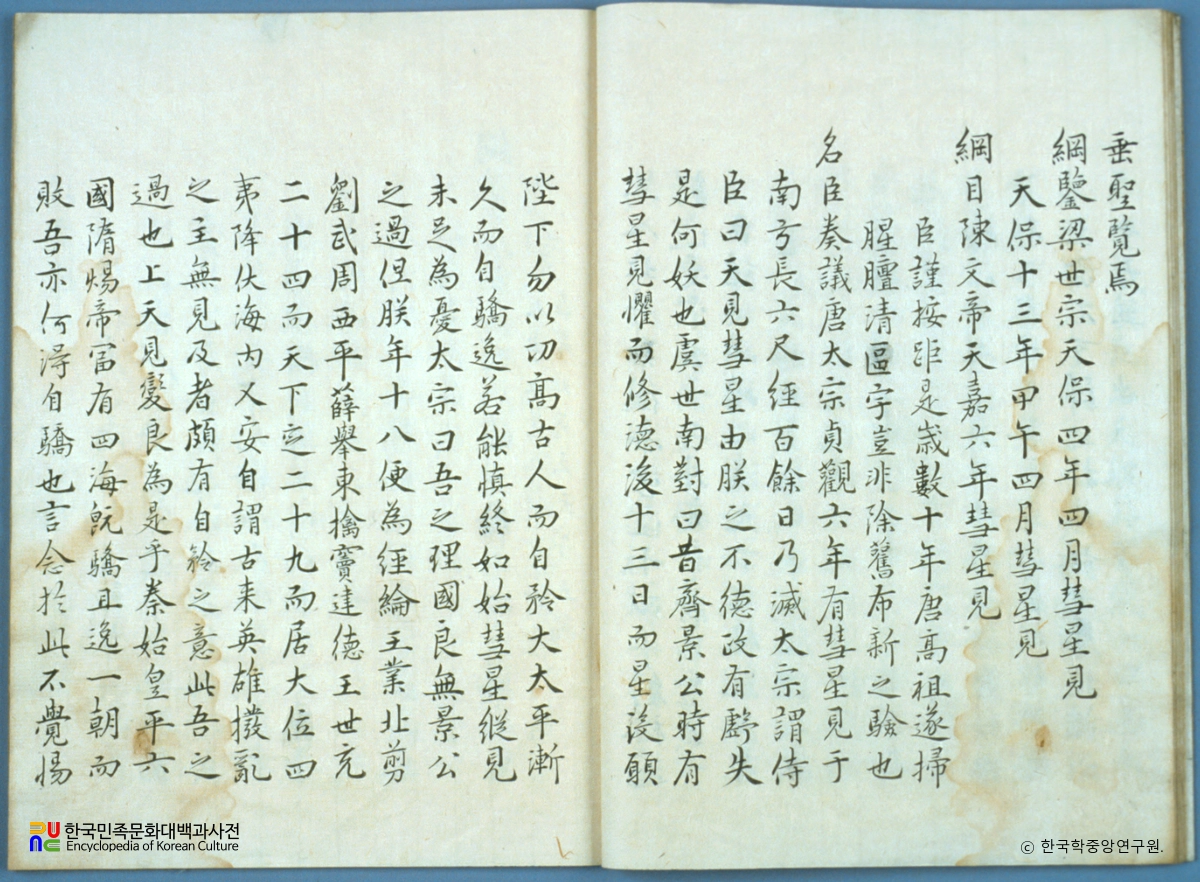 垂聖覽焉
綱鑒梁世宗天保四年四月彗星見
天保十三年甲午四月彗星見
綱目陳文帝天嘉六年彗星見
臣謹按距是歲數十年唐高祖遂掃
腥膻清區宇豈非除舊布新之驗也
名臣奏議唐太宗貞觀六年有彗星見于
南方長六尺經百餘日乃滅太宗謂侍
臣曰天見彗星由朕之不德政有虧失
是何妖也虞世南對曰昔齊景公時有
彗星見懼而修德後十三日而星沒願
陛下勿以功高古人而自矜大太平漸
久而自驕逸若能慎終如始彗星縱見
未足為憂太宗曰吾之理國良無景公
之過但朕年十八便為經綸王業北剪
劉武周西平薛舉東擒竇建德王世充
二十四而天下定二十九而居大位四
夷降伏海內乂安自謂古来英雄撥亂
之主無見及者頗有自矜之意此吾之
過也上天見變良為是乎秦始皇平六
國隋煬帝富有四海旣驕且逸一朝而
敗吾亦何得自驕也言念於此不覺惕
한국민족문화대백과사전
Encyclopedia of Korean Culture
ⓒ 한국학중앙연구원.